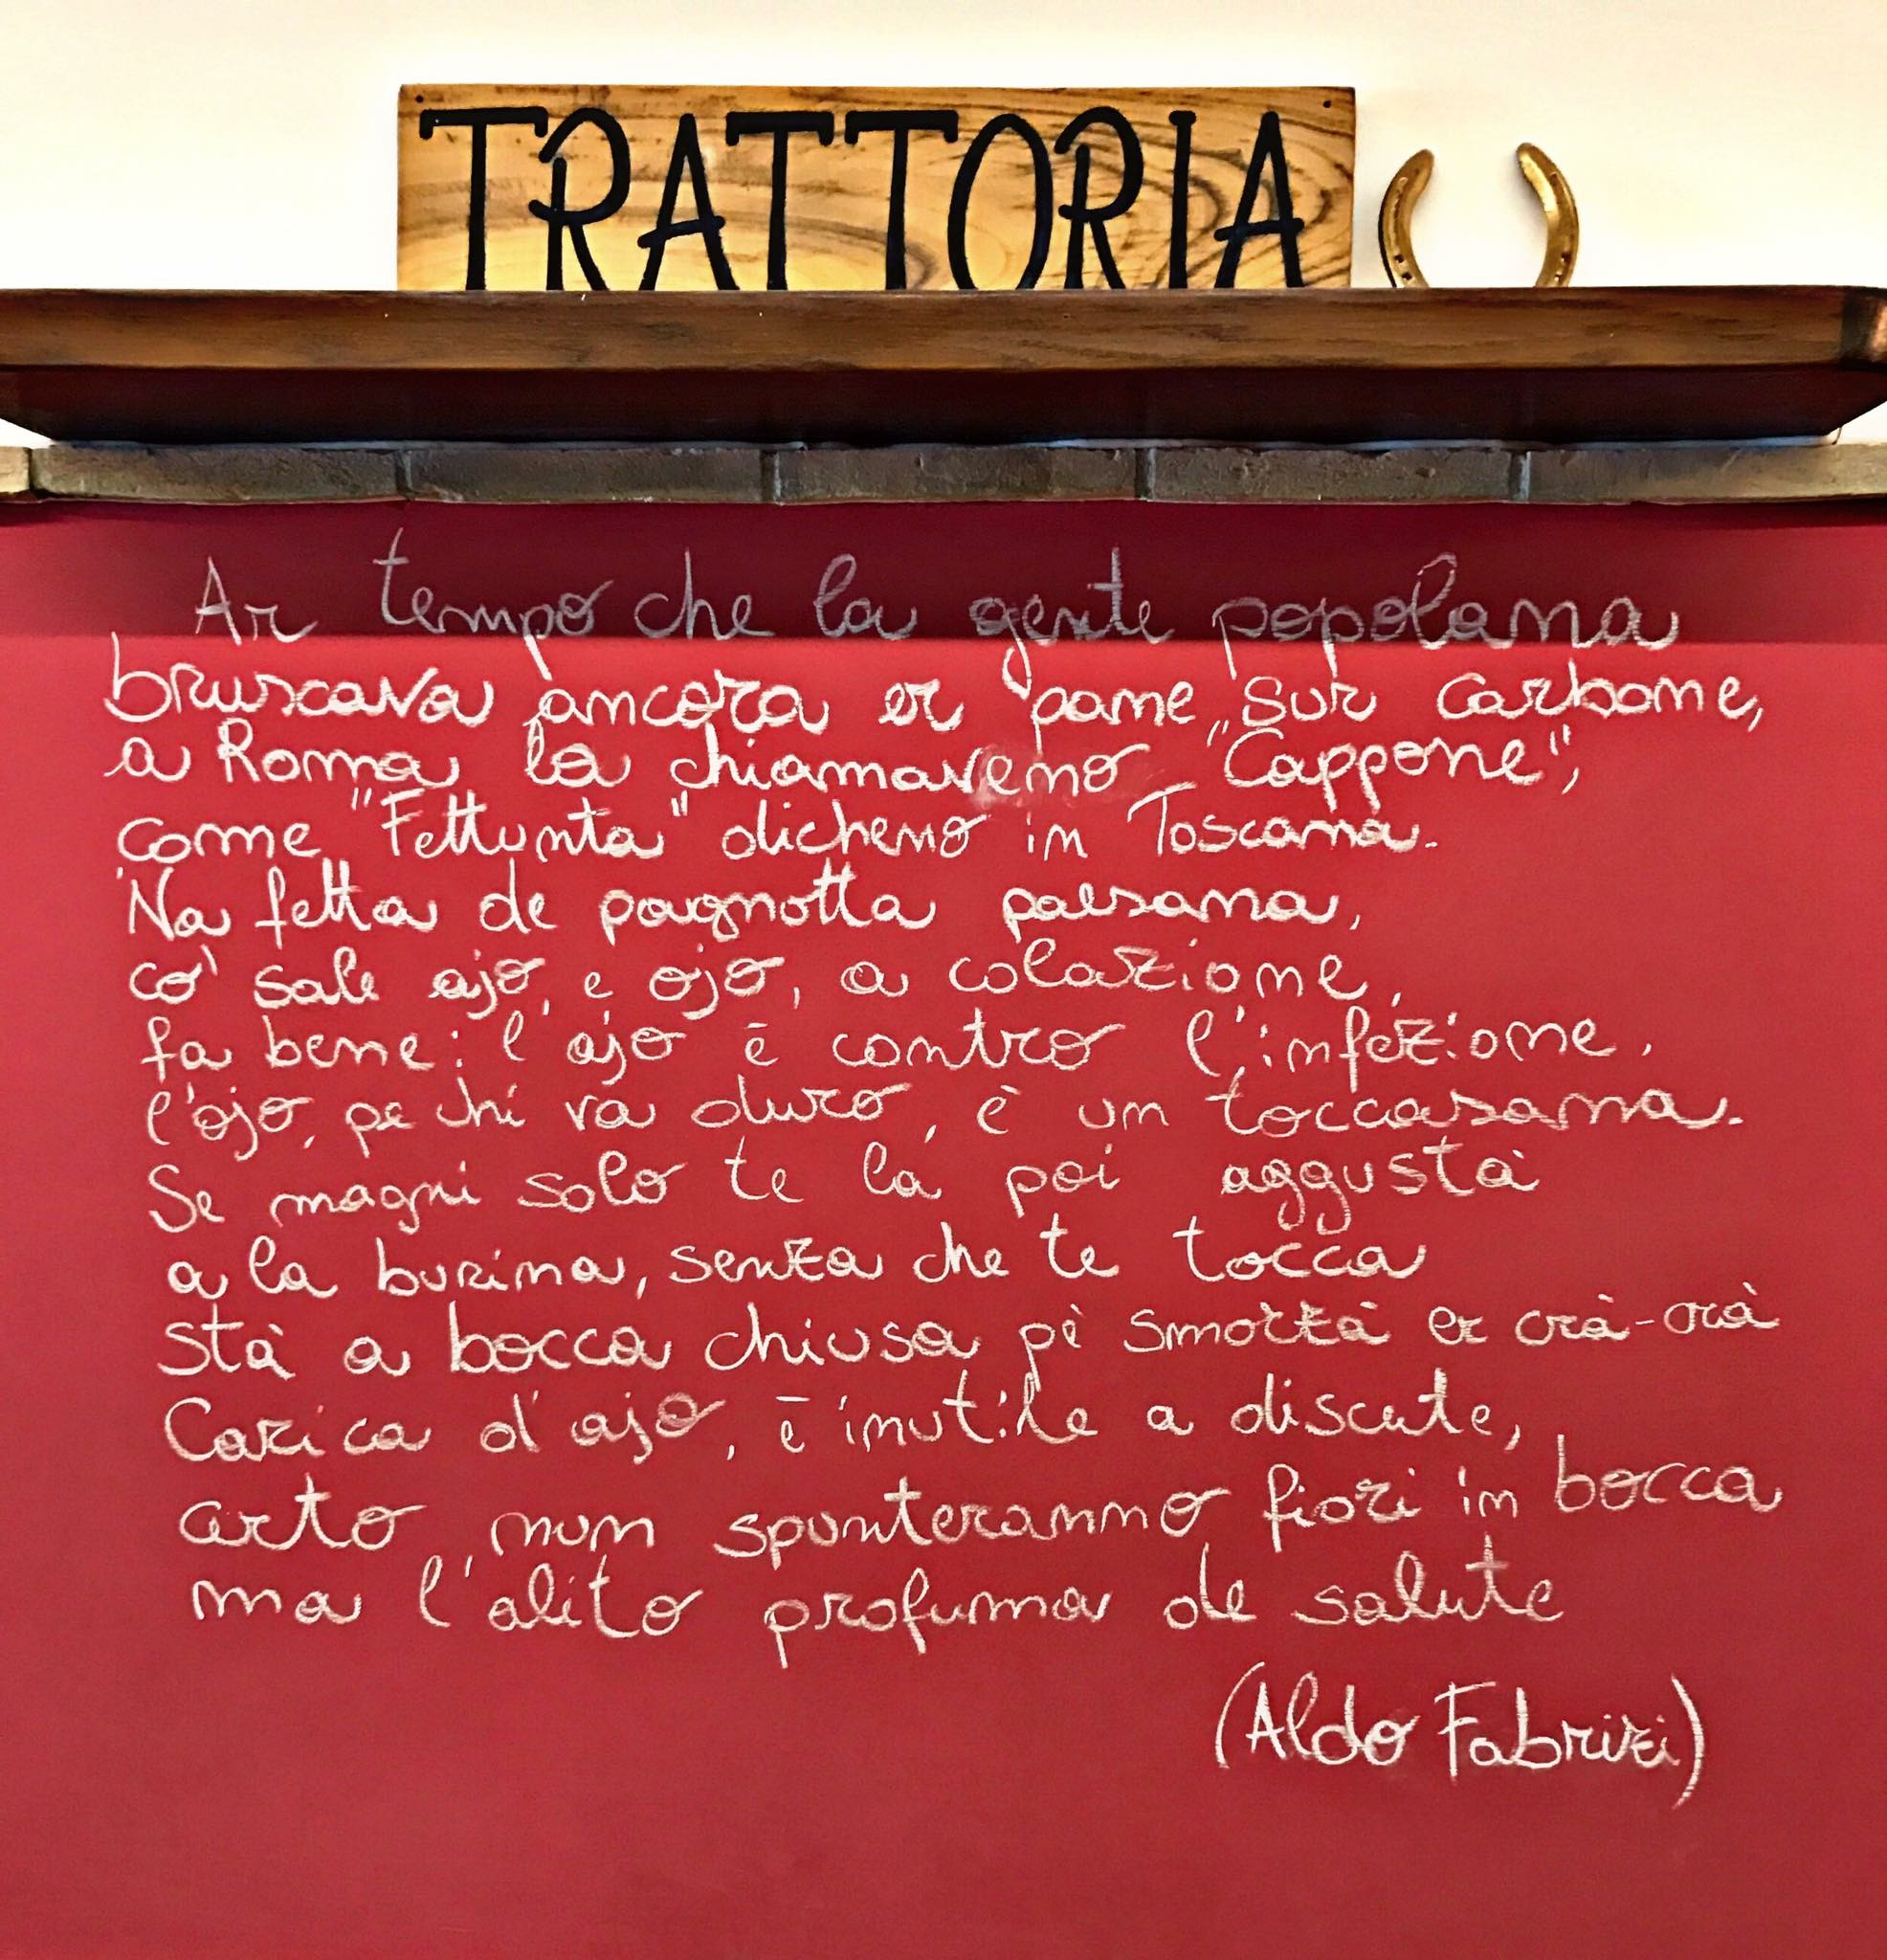 TRATTORIA
Ar tempo che la gente popolana
bruscava ancora er pane sur carbone,
a Roma la chiamaveno "Cappone",
come "Fettunta" dicheno in Toscana.
'Na fetta de pagnotta paesana,
co' sale ajo, e ojo, a colazione,
fa bene: l'ajo è contro l'infezione,
l'ojo, pe chi va duro, è un toccasana.
Se magni solo te la poi aggustà
a la burina, senza che te tocca
stà a bocca chiusa pè smorzà er crà-crà
Carica d'ajo, è inutile a discute,
arto nun spunteranno fiori in bocca
ma l'alito profuma de salute
(Aldo Fabrizi)